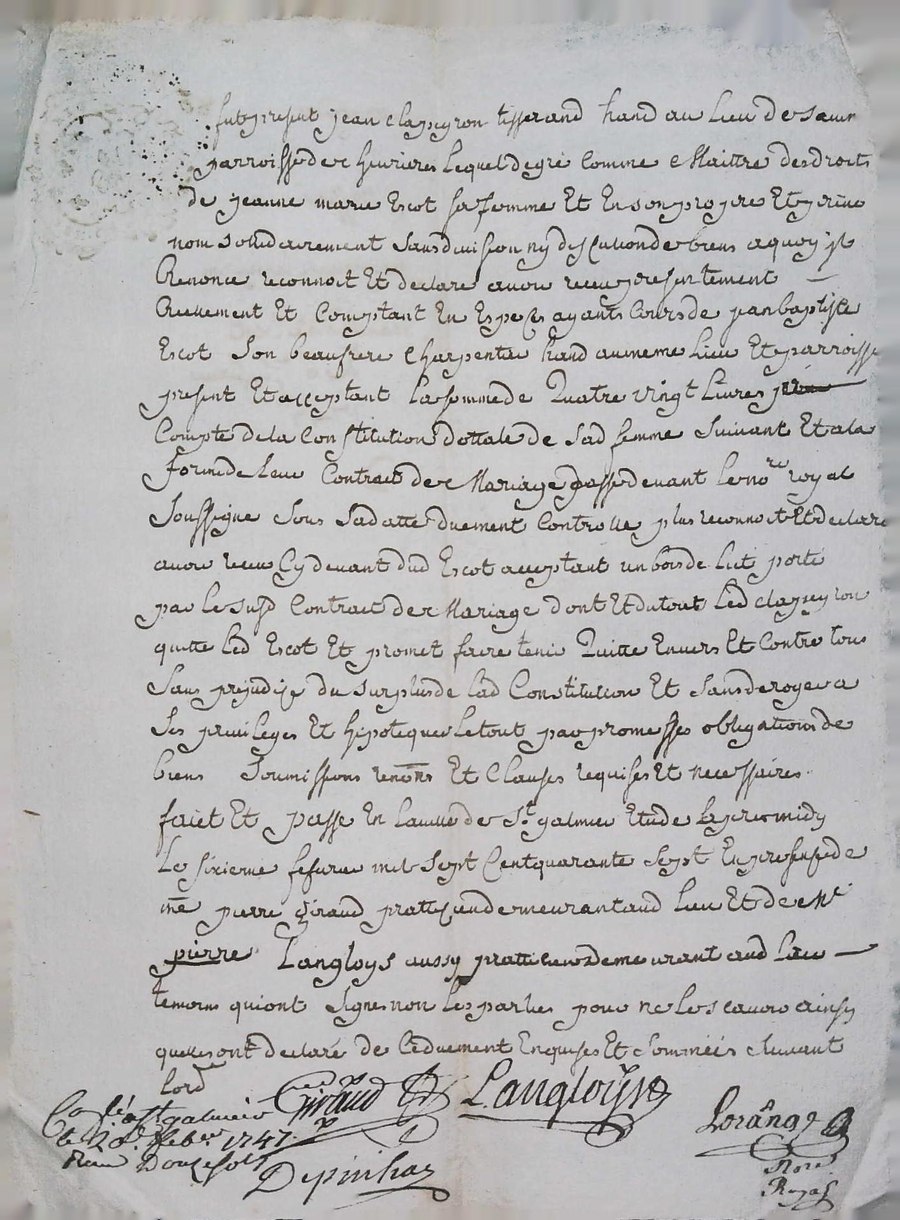 fut present jean Clapeyron tisserand hand au Lieu de
parroisse de Chevrieres Lequel de gré Comme Maittre des droits
de jeanne marie Escot sa femme Et En son propre Et privé
nom solidairement sans division ny discution de biens a quoy il
Renonce reconnoit Et declare avoir receu presentement
Reellement Et Comptant En Especes ayants Cours de jean baptiste
Escot Son beaufrere Charpentier hand au meme Lieu Et parroisse
present Et acceptant La somme de Quatre vingt Livres
Compte de la Constitution dottale de Sad femme Suivant Et a la
forme de Leur Contract de Mariage passé devant Le no.re royal
Soussigne Sous Sa datte duement Controllé plus reconnoit Et declare
avoir receu Cy devant dud Escot acceptant un bois de Lit porté
par Le susd Contract de Mariage dont Et du tout Led Clapeyron
quitte Led Escot Et promet faire tenir Quitte Envers Et Contre tous
Sans prejudise du surplus de Lad Constitution Et Sans deroger a
Ses privileges Et hipoteques Le tout par promesses obligations de
biens Soumissions renons Et Clauses requises Et necessaires
faict Et passe En La ville de St. galmier Etude apres midy
Le sixieme mil Sept Cent quarante Sept En presense de
me pierre Giraud pratticien demeurant aud Lieu Et de Me
pierre Langloys aussy pratticien demeurant aud Lieu
temoins qui ont Signes non Les parties pour ne Le scavoir ainsy
quelles ont declaré de Ce duement Enquises Et Sommées Suivant
Lorde
Giraud Langloys
Co.lé a St galmier Lorange
le 1747
Douze sols Nore.
Depinhac Royal